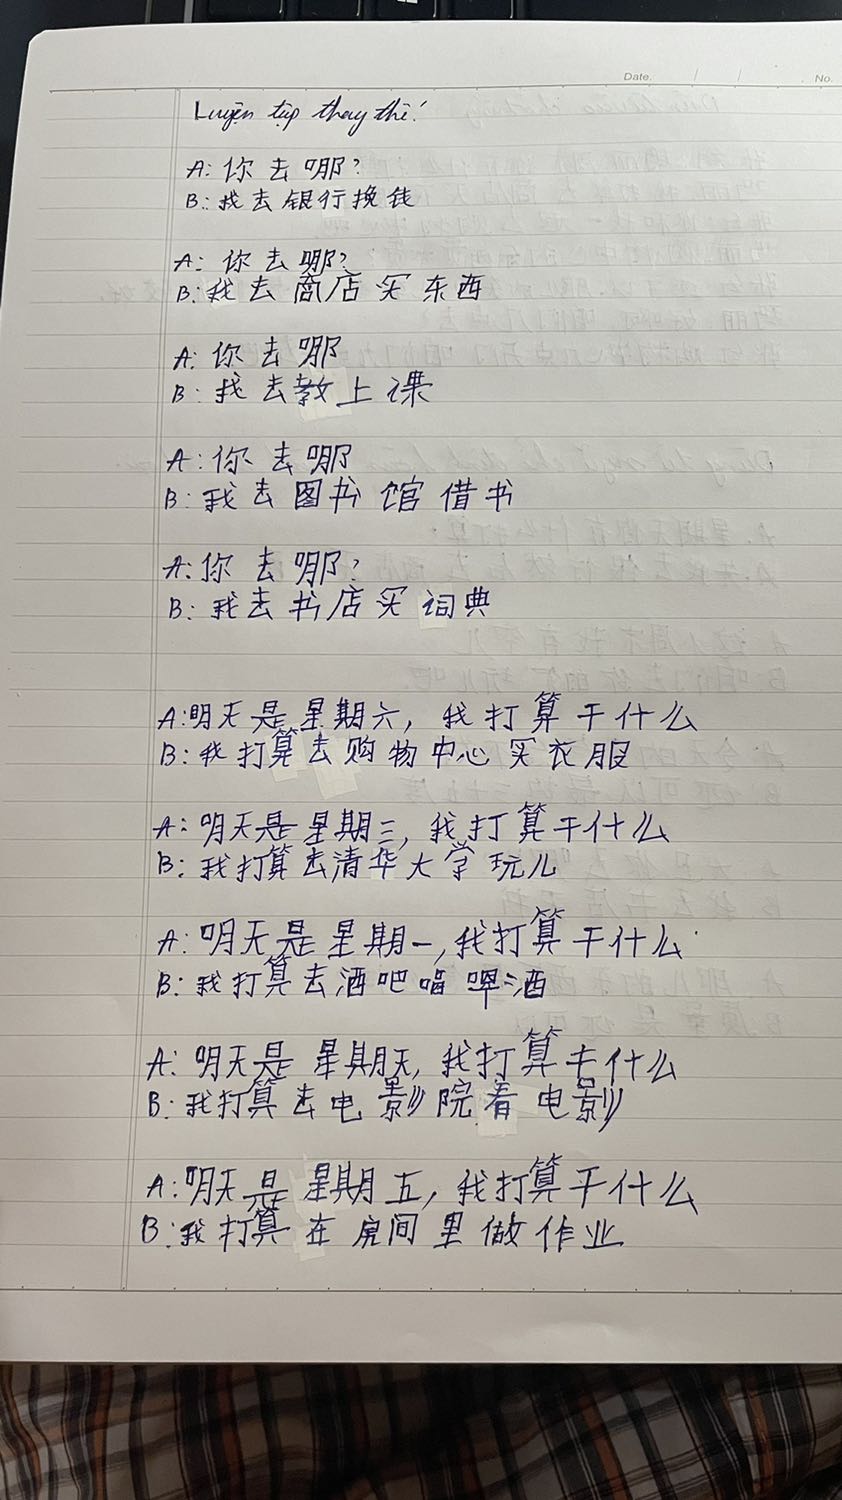 Date.
No.
Luyện tập thay thế:
A: 你去哪?
B: 我去银行换钱
A: 你去哪?
B: 我去商店买东西
A: 你去哪
B: 我去教上课
A: 你去哪
B: 我去图书馆借书
A: 你去哪?
B: 我去书店买词典
A: 明天是星期六, 我打算干什么
B: 我打算去购物中心买衣服
A: 明天是星期三, 我打算干什么
B: 我打算去清华大学玩儿
A: 明天是星期一, 我打算干什么
B: 我打算去酒吧喝啤酒
A: 明天是星期天, 我打算干什么
B: 我打算去电影院看电影
A: 明天是星期五, 我打算干什么
B: 我打算在房间里做作业